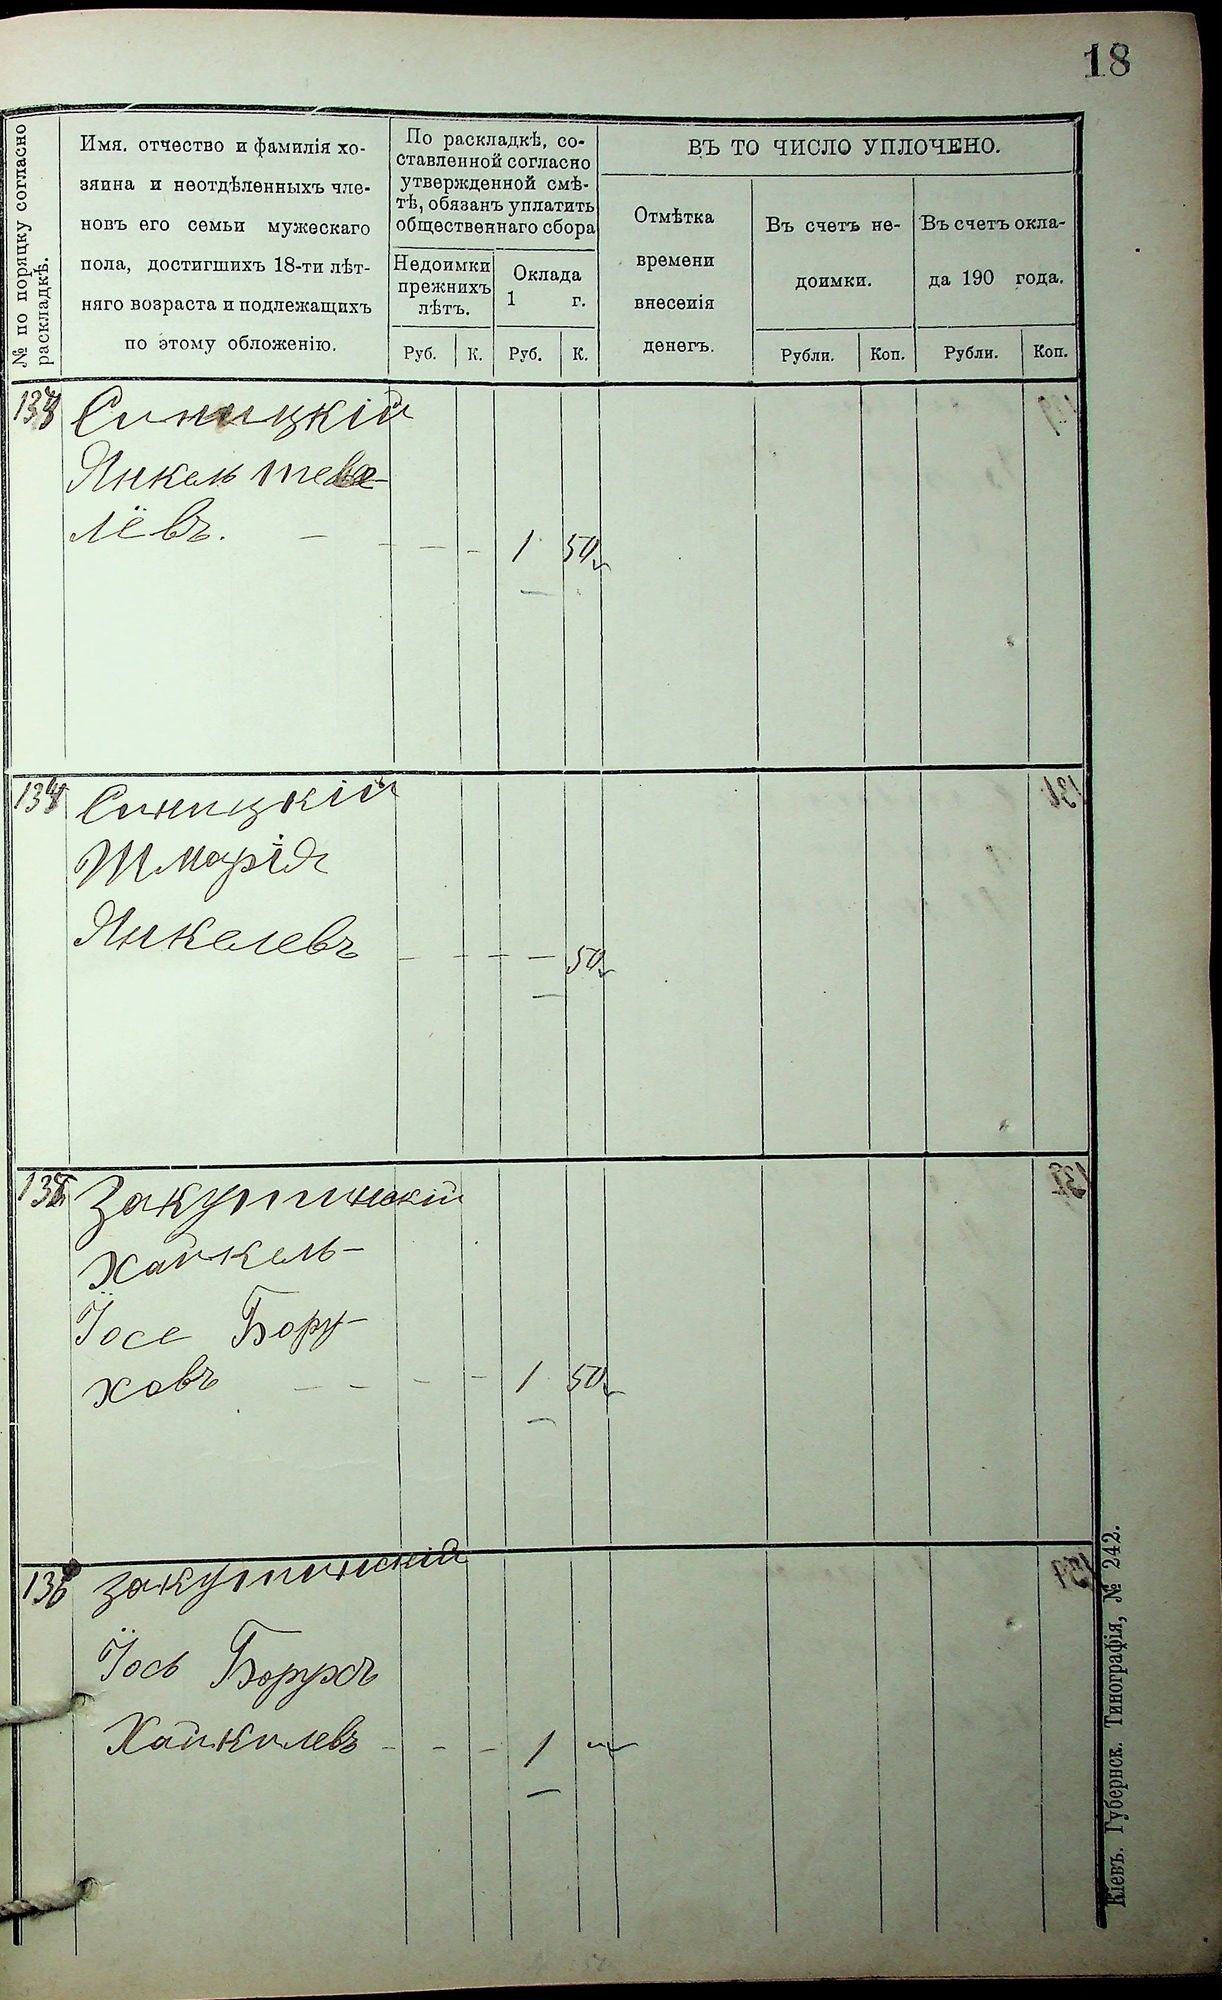 18
№ по порядку согласно
раскладкѣ.
Имя, отчество и фамилія хо-
зяина и неотдѣленныхъ чле-
новъ его семьи мужескаго
пола, достигшихъ 18-ти лѣт-
няго возраста и подлежащихъ
по этому обложенію.
По раскладкѣ, со-
ставленной согласно
утвержденной смѣ-
тѣ, обязанъ уплатить
общественнаго сбора
Недоимки
прежнихъ
лѣтъ.
Руб. К.
Оклада
1 г.
Руб. К.
ВЪ ТО ЧИСЛО УПЛОЧЕНО.
Отмѣтка
времени
внесенія
денегъ.
Въ счетъ не-
доимки.
Рубли. Коп.
Въ счетъ окла-
да 190 года.
Рубли. Коп.
Синицкій
Янкель
лёвъ. — — — — 1 50
Синицкій
Шмарія
Янкелевъ — — — — 50
Закутинскій
Хайкель-
Іосе Бору-
ховъ — — — — 1 50
136 Закутинскій
Іось Борухъ
Хайкилевъ - - - 1 —
Кіевъ. Губернск. Типографія, № 242.